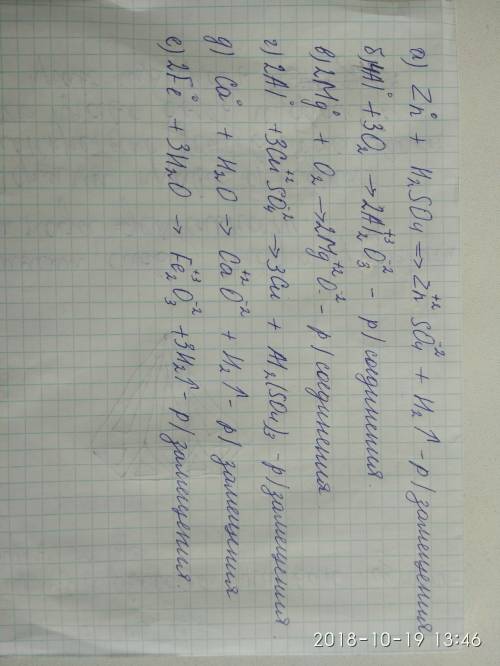 а) Zn⁰ + H₂SO₄ → Zn⁺²SO₄⁻² + H₂↑ - р/замещения
б) 4Al⁰ + 3O₂ → 2Al₂⁺³O₃⁻² - р/соединения.
в) 2Mg⁰ + O₂ → 2Mg⁺²O⁻² - р/соединения
г) 2Al⁰ + 3Cu⁺²SO₄⁻² → 3Cu + Al₂(SO₄)₃ - р/замещения
д) Ca⁰ + H₂O → Ca⁺²O⁻² + H₂↑ - р/замещения
е) 2Fe⁰ + 3H₂O → Fe₂⁺³O₃⁻² + 3H₂↑ - р/замещения.
2018-10-19 13:46